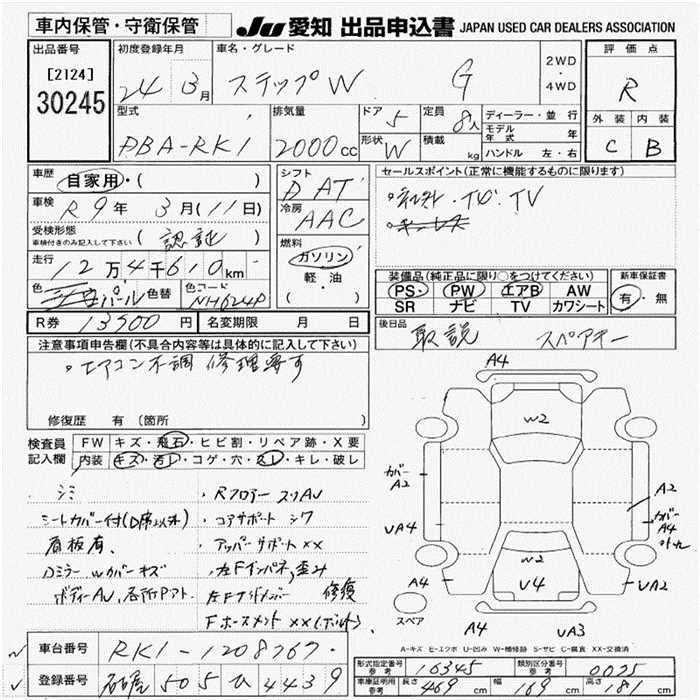 車内保管・守衛保管
JU 愛知 出品申込書 JAPAN USED CAR DEALERS ASSOCIATION
出品番号
[2124]
30245
初度登録年月
24 3月
車名・グレード
ステップW G
2WD
・
4WD
評価点
R
型式
DBA-RK1
排気量
2000cc
ドア 5
形状 W
定員 8人
積載 kg
ディーラー・並行
モデル年式 年
ハンドル 左・右
外装 内装
C B
車歴 自家用・( )
車検 R9年 3月(11日)
受検形態
車検付きのみ記入して下さい (認証)
走行 12万4千610km
色 パール 色替
色コード NH624P
シフト
D AT
冷房
AAC
燃料
ガソリン
軽・油
( )
セールスポイント(正常に機能するものに限ります)
TV
装備品(純正品に限り○をつけてください)
PS・ PW エアB AW
SR ナビ TV カワシート
新車保証書
有・無
R券 13500円
名変期限 月 日
後日品
取説 スペアキー
注意事項申告欄(不具合内容等は具体的に記入して下さい)
・エアコン不調 修理要す
修復歴 有〔箇所 〕
検査員記入欄
FW キズ・飛石・ヒビ割・リペア跡・X要
内装 キズ・汚レ・コゲ・穴・スレ・キレ・破レ
シミ
シートカバー付(D席以外)
看板有、
Dミラー Wカバーキズ
ボディーAU、各所Pアト
・Rフロアー スリAU
・コアサポート シワ
・アッパーサポートxx
・左Fインパネ歪み
左Fサイドメンバー 修復
Fホースメント xx(ボルト)
A4
W2
カバー
A2
A2
UA4
カバー
A4
W2
A4
U4
UA2
スペア
A4
UA3
A-キズ E-エクボ U-凹み W-補修跡 S-サビ C-腐食 XX-交換済
車台番号 RK1-1208767
登録番号 505 ひ 4439
形式指定番号 参考 16345
類別区分番号 参考 0025
車庫証明用 参考 長さ 469cm 幅 169cm 高さ 181cm